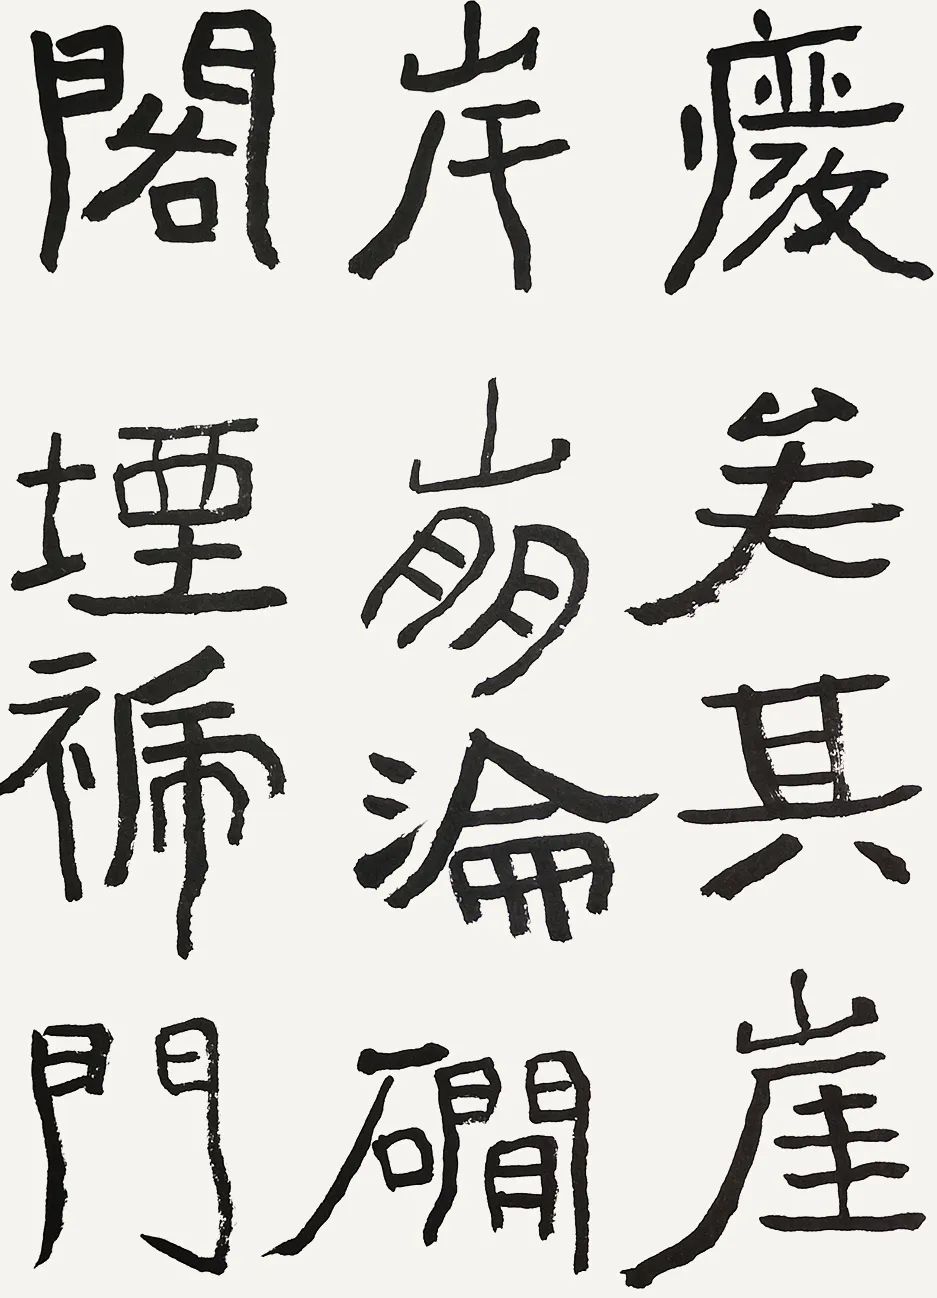 癈矣其崖
岸崩淪磵
閣堙褫門